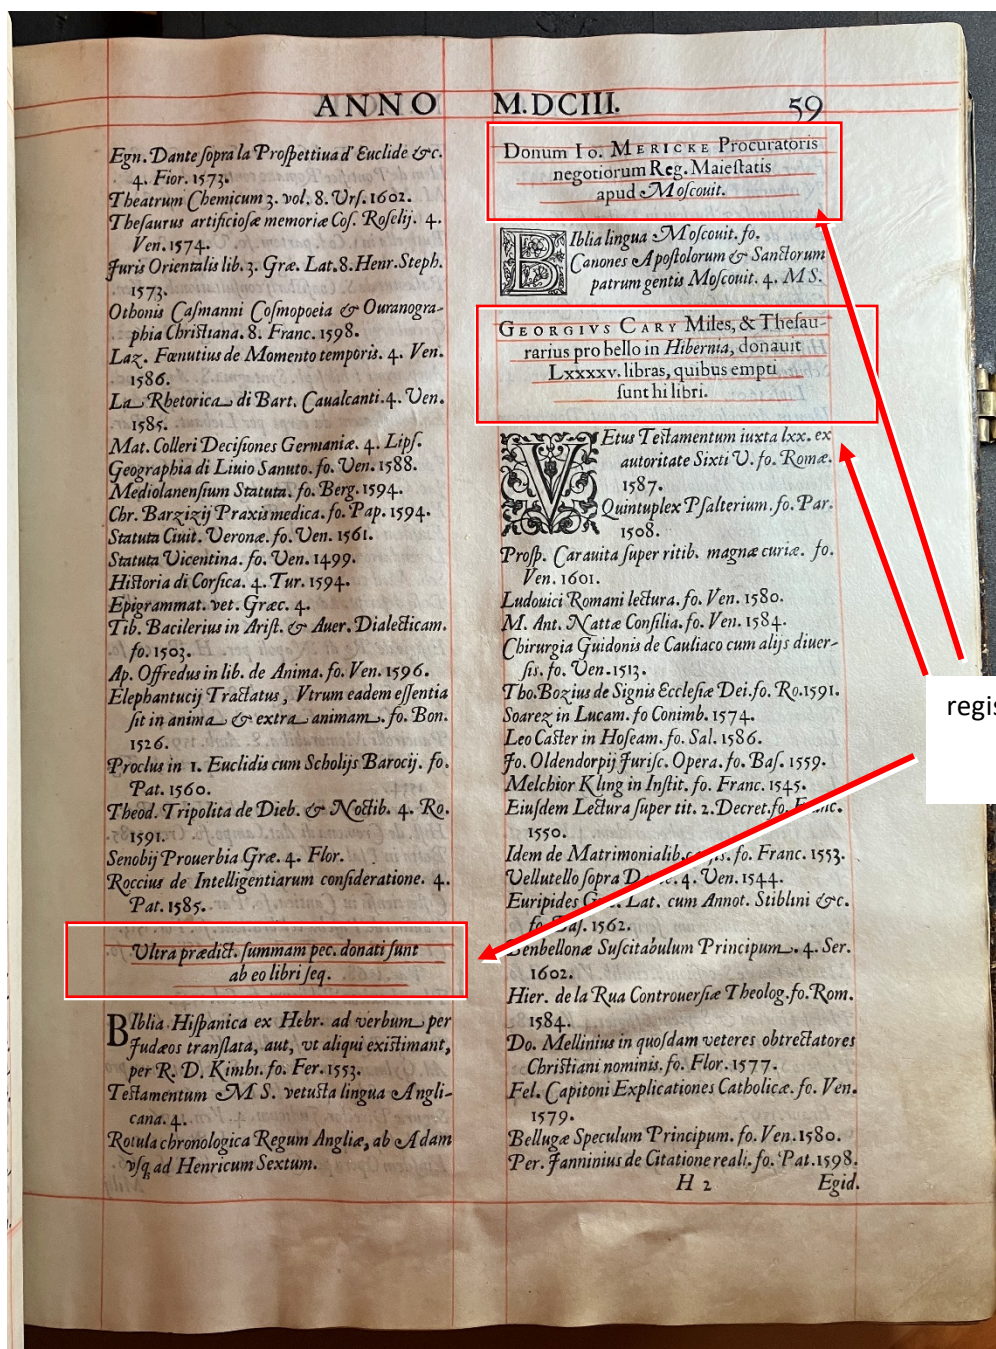 ANNO M.DCIII. 59
Egn. Dante ſopra la Proſpettiua d' Euclide &c.
4. Fior. 1573.
Theatrum Chemicum 3. vol. 8. Urſ. 1602.
Theſaurus artificioſæ memoriæ Coſ. Roſelij. 4.
Ven. 1574.
Juris Orientalis lib. 3. Græ. Lat. 8. Henr. Steph.
1573.
Othonis Caſmanni Coſmopoeia & Ouranogra-
phia Chriſtiana. 8. Franc. 1598.
Laz. Fœnutius de Momento temporis. 4. Ven.
1586.
La Rhetorica di Bart. Caualcanti. 4. Ven.
1585.
Mat. Colleri Deciſiones Germaniæ. 4. Lipſ.
Geographia di Liuio Sanuto. fo. Ven. 1588.
Mediolanenſium Statuta. fo. Berg. 1594.
Chr. Barzizij Praxis medica. fo. Pap. 1594.
Statuta Ciuit. Veronæ. fo. Ven. 1561.
Statuta Vicentina. fo. Ven. 1499.
Hiſtoria di Corſica. 4. Tur. 1594.
Epigrammat. vet. Græc. 4.
Tib. Bacilerius in Ariſt. & Auer. Dialecticam.
fo. 1503.
Ap. Offredus in lib. de Anima. fo. Ven. 1596.
Elephantucij Tractatus, Vtrum eadem eſſentia
ſit in anima & extra animam. fo. Bon.
1526.
Proclus in 1. Euclidis cum Scholijs Barocij. fo.
Pat. 1560.
Theod. Tripolita de Dieb. & Noctib. 4. Ro.
1591.
Senobij Prouerbia Græ. 4. Flor.
Roccius de Intelligentiarum conſideratione. 4.
Pat. 1585.
Ultra prædict. ſummam pec. donati ſunt
ab eo libri ſeq.
BIblia Hiſpanica ex Hebr. ad verbum per
Judæos tranſlata, aut, vt aliqui exiſtimant,
per R. D. Kimhi. fo. Fer. 1553.
Teſtamentum MS. vetuſta lingua Angli-
cana. 4.
Rotula chronologica Regum Angliæ, ab Adam
vſq ad Henricum Sextum.
Donum Io. MERICKE Procuratoris
negotiorum Reg. Maieſtatis
apud Moſcouit.
BIblia lingua Moſcouit. fo.
Canones Apoſtolorum & Sanctorum
patrum gentis Moſcouit. 4. MS.
GEORGIVS CARY Miles, & Theſau-
rarius pro bello in Hibernia, donauit
Lxxxxv. libras, quibus empti
ſunt hi libri.
VEtus Teſtamentum iuxta lxx. ex
autoritate Sixti V. fo. Romæ.
1587.
Quintuplex Pſalterium. fo. Par.
1508.
Proſp. Carauita ſuper ritib. magnæ curiæ. fo.
Ven. 1601.
Ludouici Romani lectura. fo. Ven. 1580.
M. Ant. Nattæ Conſilia. fo. Ven. 1584.
Chirurgia Guidonis de Cauliaco cum alijs diuer-
ſis. fo. Ven. 1513.
Tho. Bozius de Signis Eccleſiæ Dei. fo. Ro. 1591.
Soarez in Lucam. fo Conimb. 1574.
Leo Caſter in Hoſeam. fo. Sal. 1586.
Jo. Oldendorpij Juriſc. Opera. fo. Baſ. 1559.
Melchior Kling in Inſtit. fo. Franc. 1545.
Eiuſdem Lectura ſuper tit. 2. Decret. fo. Franc.
1550.
Idem de Matrimonialib. fo. Franc. 1553.
Vellutello ſopra 4. Ven. 1544.
Euripides Lat. cum Annot. Stiblini &c.
fo. Baſ. 1562.
Benbellonæ Suſcitabulum Principum. 4. Ser.
1602.
Hier. de la Rua Controuerſiæ Theolog. fo. Rom.
1584.
Do. Mellinius in quoſdam veteres obtrectatores
Chriſtiani nominis. fo. Flor. 1577.
Fel. Capitoni Explicationes Catholicæ. fo. Ven.
1579.
Bellugæ Speculum Principum. fo. Ven. 1580.
Per. Janninius de Citatione reali. fo. Pat. 1598.
H 2 Egid.
regis